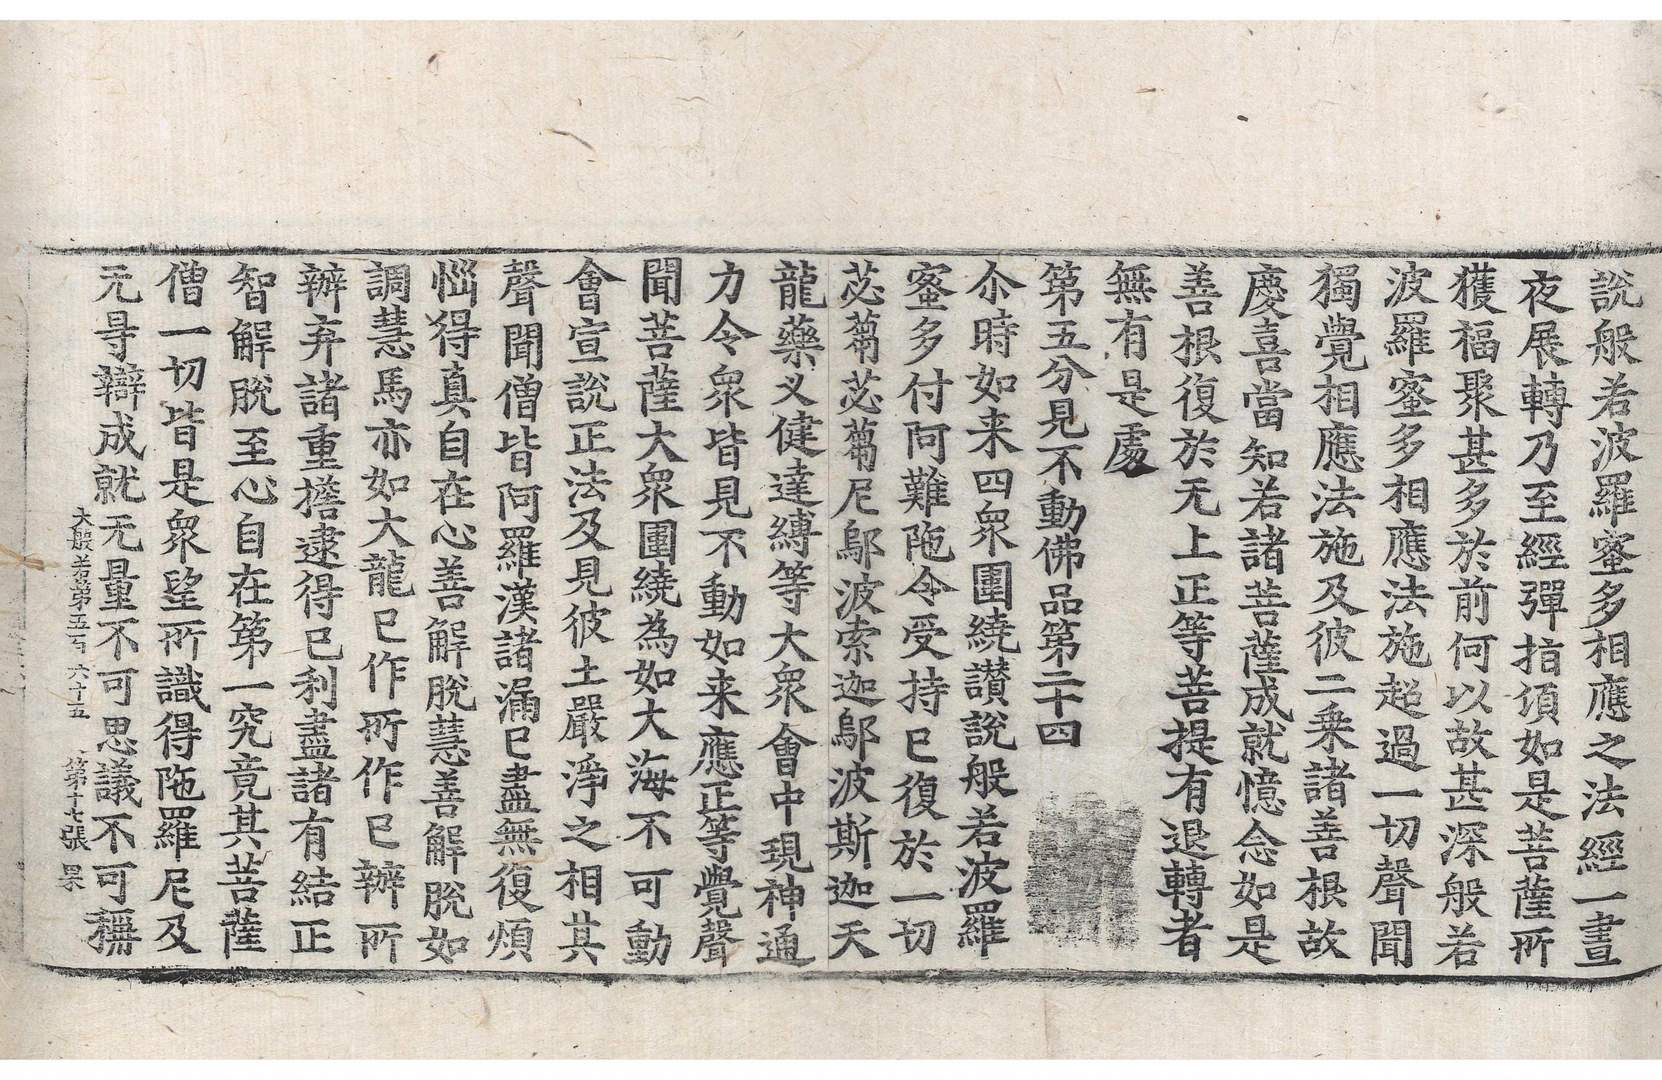 說般若波羅蜜多相應之法經一晝
夜展轉乃至經彈指湏如是菩薩所
獲福聚甚多於前何以故甚深般若
波羅蜜多相應法施超過一切聲聞
獨覺相應法施及彼二乗諸善根故
慶喜當知若諸菩薩成就憶念如是
善根復於无上正等菩提有退轉者
無有是處
第五分見不動佛品第二十四
尒時如来四衆圍繞讃說般若波羅
蜜多付阿難陁令受持已復於一切
苾蒭苾蒭尼鄔波索迦鄔波斯迦天
龍藥义健達縛等大衆會中現神通
力令衆皆見不動如来應正等覺聲
聞菩薩大衆圍繞為如大海不可動
會宣說正法及見彼土嚴淨之相其
聲聞僧皆阿羅漢諸漏已盡無復煩
惱得真自在心善解脫慧善解脫如
調慧馬亦如大龍已作所作已辦所
辦弃諸重擔逮得已利盡諸有結正
智解脫至心自在第一究竟其菩薩
僧一切皆是衆望所識得陁羅尼及
无㝵辯成就无量不可思議不可稱
大般若第五百六十五 第十七張 杲